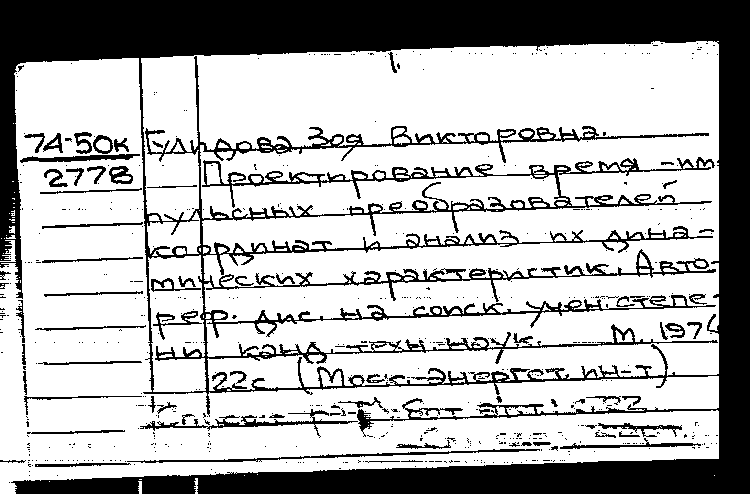 1.
74-50к Гулидова, Зоя Викторовна.
2778 Проектирование время-им-
пульсных преобразователей
координат и анализ их дина-
мических характеристик. Авто-
реф. дис. на соиск. учен. степе-
ни канд. техн. наук. М., 1974
22с. (Моск. энергет. ин-т).
Список работ авт.: с. 22.